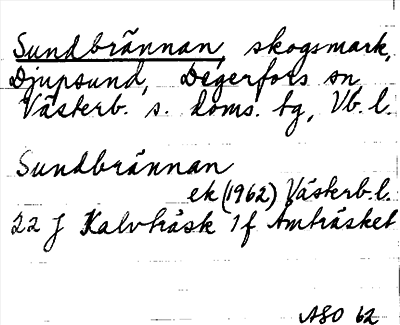 Sundbrännan, skogsmark,
Djupsund, Degerfors sn
Västerb. s. doms. tg, Vb. l.
Sundbrännan
ek (1962) Västerb. l.
22 J Kalvträsk 1 f Amträsket
ASO 62